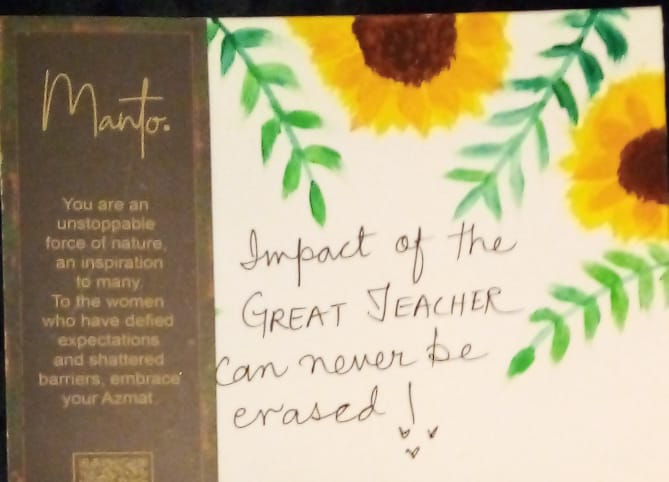 Manto.
You are an
unstoppable
force of nature,
an inspiration
to many.
To the women
who have defied
expectations
and shattered
barriers, embrace
your Azmat.
Impact of the
GREAT TEACHER
can never be
erased!